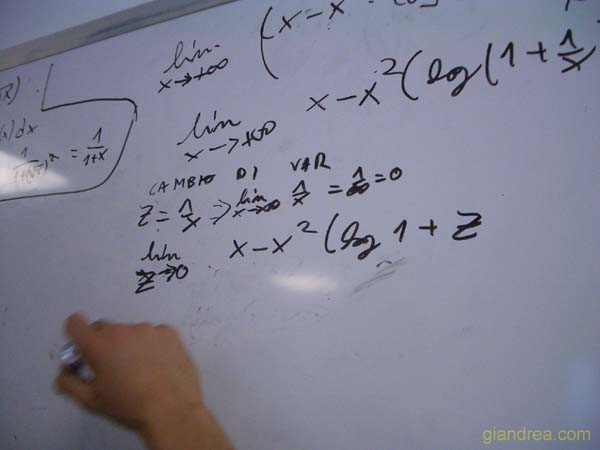 lim x→+∞ (x - x² · log
lim x→+∞ x - x² (log (1 + 1/x)
R)
dx
= 1/1+x
CAMBIO DI VAR
Z = 1/x ⇒ lim x→∞ 1/x = 1/∞ = 0
lim z→0 x - x² (log 1 + Z
giandrea.com